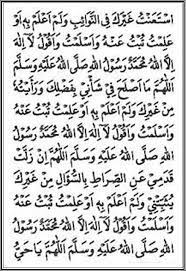 اسْتَعَنْتُ غَيْرَكَ فِى النَّوَائِبِ وَلَمْ اَعْلَمْ بِهٖ اَوْ
عَلِمْتُ تُبْتُ عَنْهُ وَاَسْلَمْتُ وَاَقُوْلُ لَآ اِلٰهَ اِلَّا
اللهُ مُحَمَّدٌ رَّسُوْلُ اللهِ صَلَّى اللهُ عَلَيْهِ وَسَلَّمَ
اَللّٰهُمَّ مَا اَصْلَحَ فِىْ شَأْنِىْ بِفَضْلِكَ وَرَاَيْتُهٗ
مِنْ غَيْرِكَ وَلَمْ اَعْلَمْ بِهٖ اَوْ عَلِمْتُ تُبْتُ عَنْهُ
وَاَسْلَمْتُ وَاَقُوْلُ لَآ اِلٰهَ اِلَّا اللهُ مُحَمَّدٌ رَّسُوْلُ
اللهِ صَلَّى اللهُ عَلَيْهِ وَسَلَّمَ اَللّٰهُمَّ اِنْ زَلَّتْ
قَدَمِىْ عَنِ الصِّرَاطِ بِالسُّؤَالِ مِنْ غَيْرِكَ
لِيُثَبِّتَنِىْ وَلَمْ اَعْلَمْ بِهٖ اَوْ عَلِمْتُ تُبْتُ عَنْهُ
وَاَسْلَمْتُ وَاَقُوْلُ لَآ اِلٰهَ اِلَّا اللهُ مُحَمَّدٌ رَّسُوْلُ
اللهِ صَلَّى اللهُ عَلَيْهِ وَسَلَّمَ اَللّٰهُمَّ يَا حَىُّ